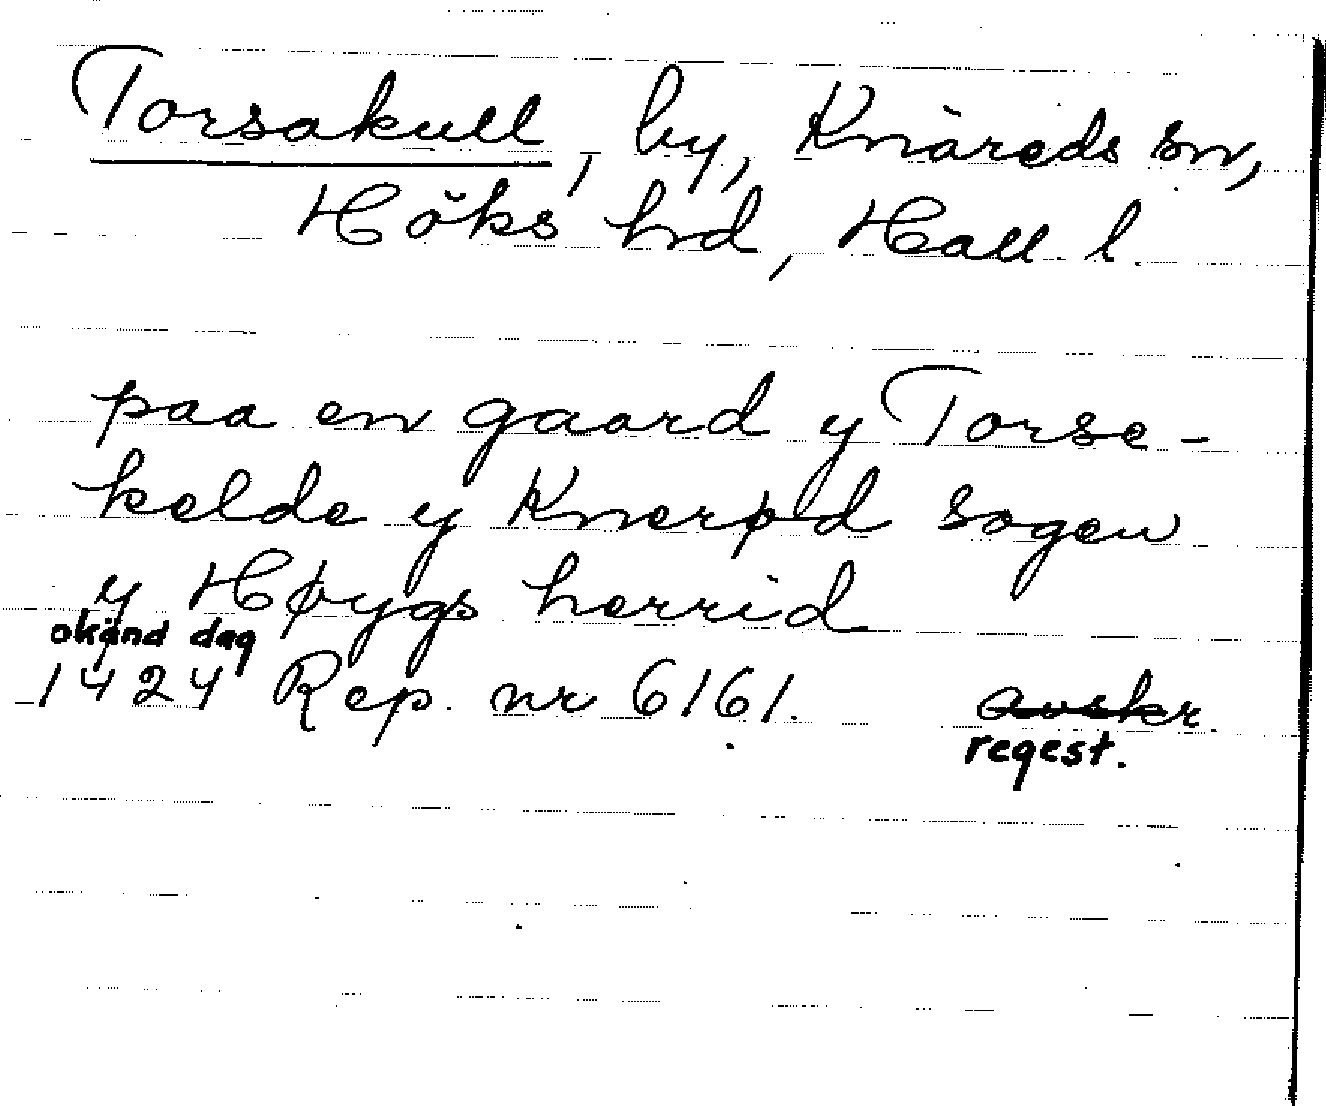 Torsakull, by, Knäreds sn,
Höks hrd, Hall. l.
paa en gaard y Torse-
kelde y Knerød sogen
y Høygs herrid
okänd dag
1424 Rep. nr 6161. avskr.
regest.